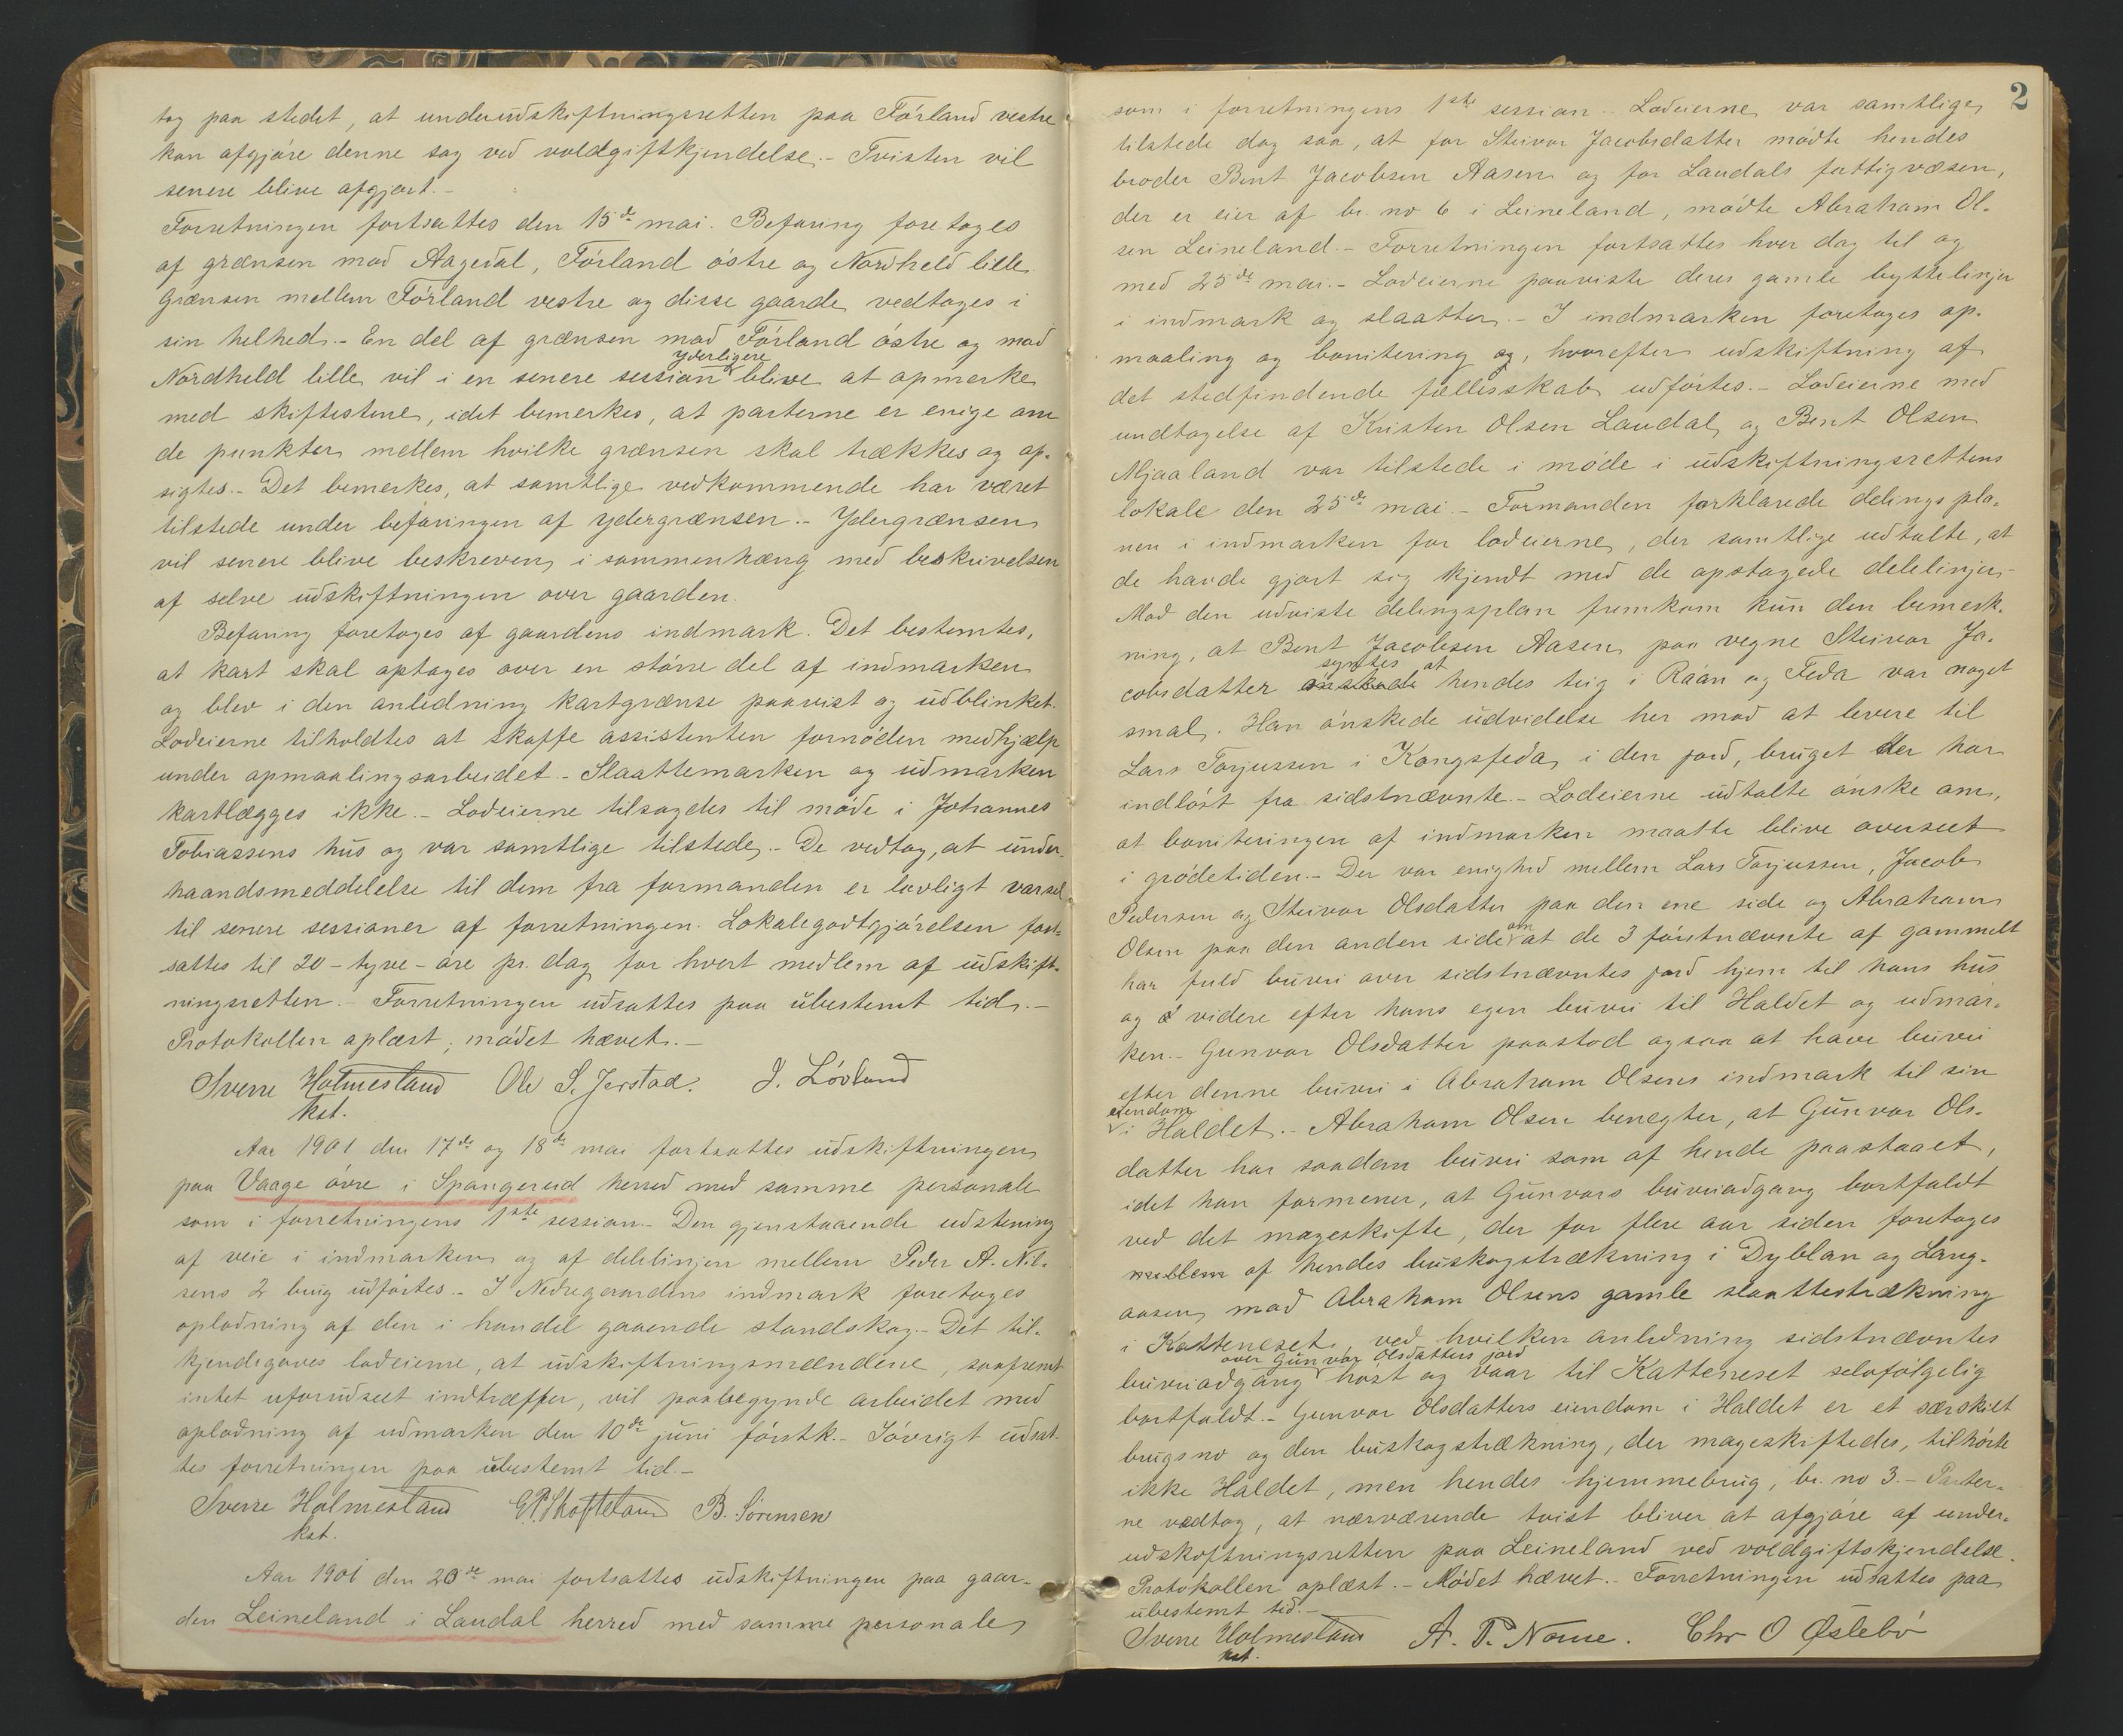 tog paa stedet, at underudskiftningsretten paa Förland vestre
kan afgjöre denne sag ved voldgiftkjendelse. - Tvisten vil
senere blive afgjort. -
Forretningen fortsattes den 15de mai. Befaring foretoges
af grænsen mod Aagedal, Förland östre og Nordheld lille.
Grænsen mellem Förland vestre og disse gaarde vedtoges i
sin helhed. - En del af grænsen mod Förland östre og mod
yderligere
Nordheld lille vil i en senere session blive at opmerke
med skiftestene, idet bemerkes, at parterne er enige om
de punkter mellem hvilke grænsen skal trækkes og op-
sigtes. - Det bemerkes, at samtlige vedkommende har været
tilstede under befaringen af ydergrænsen. - Ydergrænsen
vil senere blive beskreven i sammenhæng med beskrivelsen
af selve udskiftningen over gaarden.
Befaring foretoges af gaardens indmark. Det bestemtes,
at kart skal optages over en större del af indmarken
og blev i den anledning kartgrænse paavist og udblinket.
Lodeierne tilholdtes at skaffe assistenten fornöden medhjælp
under opmaalingsarbeidet. - Slaattemarken og udmarken
kartlægges ikke. - Lodeierne tilsagdes til möde i Johannes
Tobiassens hus og var samtlige tilstede. - De vedtog, at under-
haandsmeddelelse til dem fra formanden er lovligt varsel
til senere sessioner af forretningen. Lokalegodtgjörelsen fast-
sattes til 20 - tyve - öre pr. dag for hvert medlem af udskift-
ningsretten. - Forretningen udsattes paa ubestemt tid. -
Protokollen oplæst; mödet hævet. -
Sverre Holmesland Ole S. Jerstad. J. Lövland
kst.
Aar 1901 den 17de og 18de mai fortsattes udskiftningen
paa Vaage övre i Spangereid herred med samme personale
som i forretningens 1ste session. - Den gjenstaaende udstening
af veie i indmarken og af delelinjen mellem Peder A. Nil-
sens 2 brug udförtes. - I Nedregaardens indmark foretoges
oplodning af den i handel gaaende standskog. - Det til-
kjendegaves lodeierne, at udskiftningsmændene, saafremt
intet uforudseet indtræffer, vil paabegynde arbeidet med
oplodning af udmarken den 10de juni förstk. - Iövrigt udsat-
tes forretningen paa ubestemt tid. -
Sverre Holmesland B. Sörensen
kst.
Aar 1901 den 20de mai fortsattes udskiftningen paa gaar-
den Leineland i Laudal herred med samme personale
2
som i forretningens 1ste session. - Lodeierne var samtlige
tilstede dog saa, at for Steivor Jacobsdatter mödte hendes
broder Bent Jacobsen Aasen og for Laudals fattigvæsen,
der er eier af br. no 6 i Leineland, mödte Abraham Ol-
sen Leineland. - Forretningen fortsattes hver dag til og
med 25de mai. - Lodeierne paaviste deres gamle byttelinjer
i indmark og slaatter. - I indmarken foretoges op-
maaling og bonitering og, hvorefter udskiftning af
det stedfindende fællesskab udförtes. - Lodeierne med
undtagelse af Kristen Olsen Laudal og Bent Olsen
Mjaaland var tilstede i möde i udskiftningsrettens
lokale den 25de mai. - Formanden forklarede delingspla-
nen i indmarken for lodeierne, der samtlige udtalte, at
de havde gjort sig kjendt med de opstagede delelinjer. -
Mod den udviste delingsplan fremkom kun den bemerk-
ning, at Bent Jacobsen Aasen paa vegne Steivor Ja-
syntes at
cobsdatter önskede hendes teig i Råån og Feda var noget
smal. Han önskede udvidelse her mod at levere til
Lars Torjussen i Kongsfeda i den jord, bruget der har
indlöst fra sidstnævnte. - Lodeierne udtalte önske om,
at boniteringen af indmarken maatte blive overseet
i grödetiden. - Der var enighed mellem Lars Torjussen, Jacob
Pedersen og Steivor Olsdatter paa den ene side og Abraham
om
Olsen paa den anden side at de 3 förstnævnte af gammelt
har fuld buvei over sidstnævntes jord hjem til hans hus
og videre efter hans egen buvei til Haldet og udmar-
ken. - Gunvor Olsdatter paastod ogsaa at have buvei
efter denne buvei i Abraham Olsens indmark til sin
eiendom
i Haldet. - Abraham Olsen benegter, at Gunvor Ols-
datter har saadan buvei som af hende paastaaet,
idet han formener, at Gunvors buveiadgang bortfaldt
ved det mageskifte, der for flere aar siden foretoges
mellem af hendes buskogstrækning i Dyblan og Lang-
aasen mod Abraham Olsens gamle slaattestrækning
i Katteneset, ved hvilken anledning sidstnævntes
over Gunvor Olsdatters jord
buveiadgang höst og vaar til Katteneset selvfölgelig
bortfaldt. - Gunvor Olsdatters eiendom i Haldet er et særskilt
brugsno og den buskogstrækning, der mageskiftedes, tilhörte
ikke Haldet, men hendes hjemmebrug, br. no 3. - Parter-
ne vedtog, at nærværende tvist bliver at afgjöre af under-
udskiftningsretten paa Leineland ved voldgiftskjendelse.
Protokollen oplæst. - Mödet hævet. - Forretningen udsattes paa
ubestemt tid. -
Sverre Holmesland A. P. Nome. Chr O Østebö
kst.